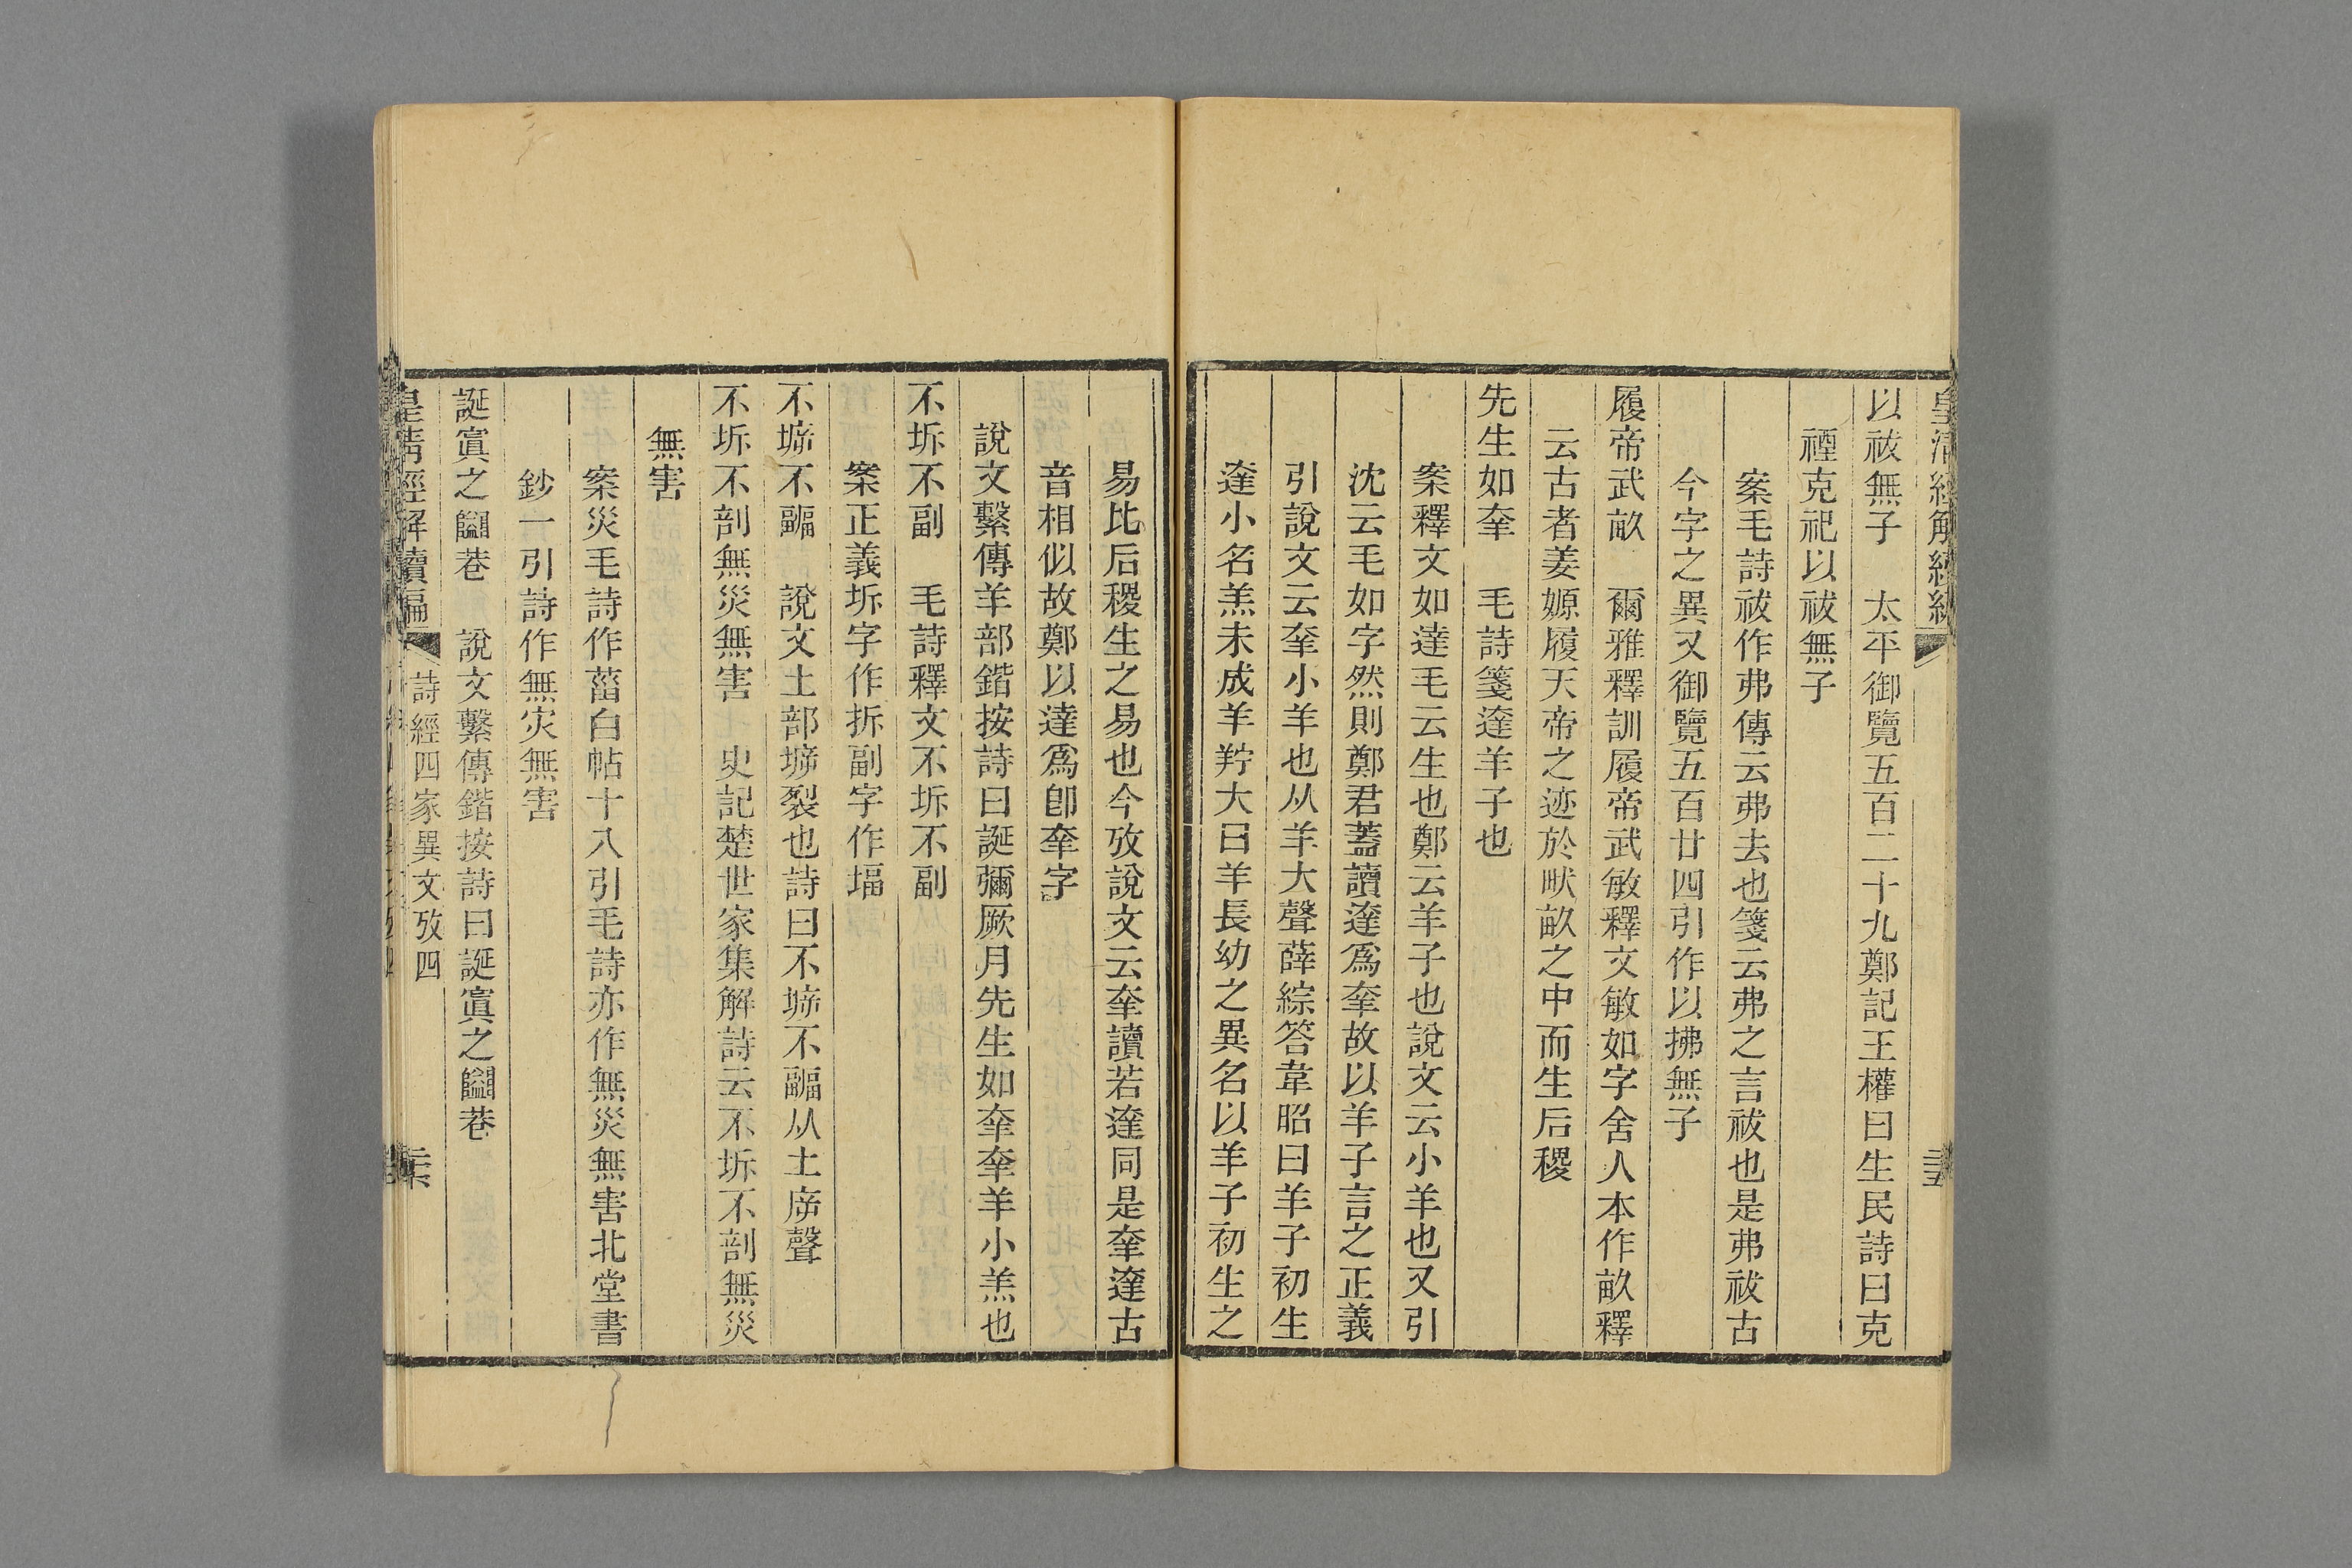 以祓無子　太平御覽五百二十九鄭記王權曰生民詩曰克
禋克祀以祓無子
案毛詩祓作弗傳云弗去也箋云弗之言祓也是弗祓古
今字之異又御覽五百廿四引作以拂無子
履帝武畝　爾雅釋訓履帝武敏釋文敏如字舍人本作畝釋
云古者姜嫄履天帝之迹於畎畝之中而生后稷
先生如羍　毛詩箋達羊子也
案釋文如達毛云生也鄭云羊子也說文云小羊也又引
沈云毛如字然則鄭君蓋讀達爲羍故以羊子言之正義
引說文云羍小羊也从羊大聲薛綜答韋昭曰羊子初生
達小名羔未成羊羜大曰羊長幼之異名以羊子初生之
易比后稷生之易也今攷說文云羍讀若達同是羍達古
音相似故鄭以達爲卽羍字
說文繫傳羊部鍇按詩曰誕彌厥月先生如羍羍羊小羔也
不坼不副　毛詩釋文不坼不副
案正義坼字作拆副字作堛
不㙤不疈　說文土部㙤裂也詩曰不㙤不疈从土㡿聲
不坼不剖無災無害　史記楚世家集解詩云不坼不剖無災
無害
案災毛詩作菑白帖十八引毛詩亦作無災無害北堂書
鈔一引詩作無灾無害
誕寘之䦽巷　說文繫傳鍇按詩曰誕寘之䦽巷
皇清經解續編　詩經四家異文攷四